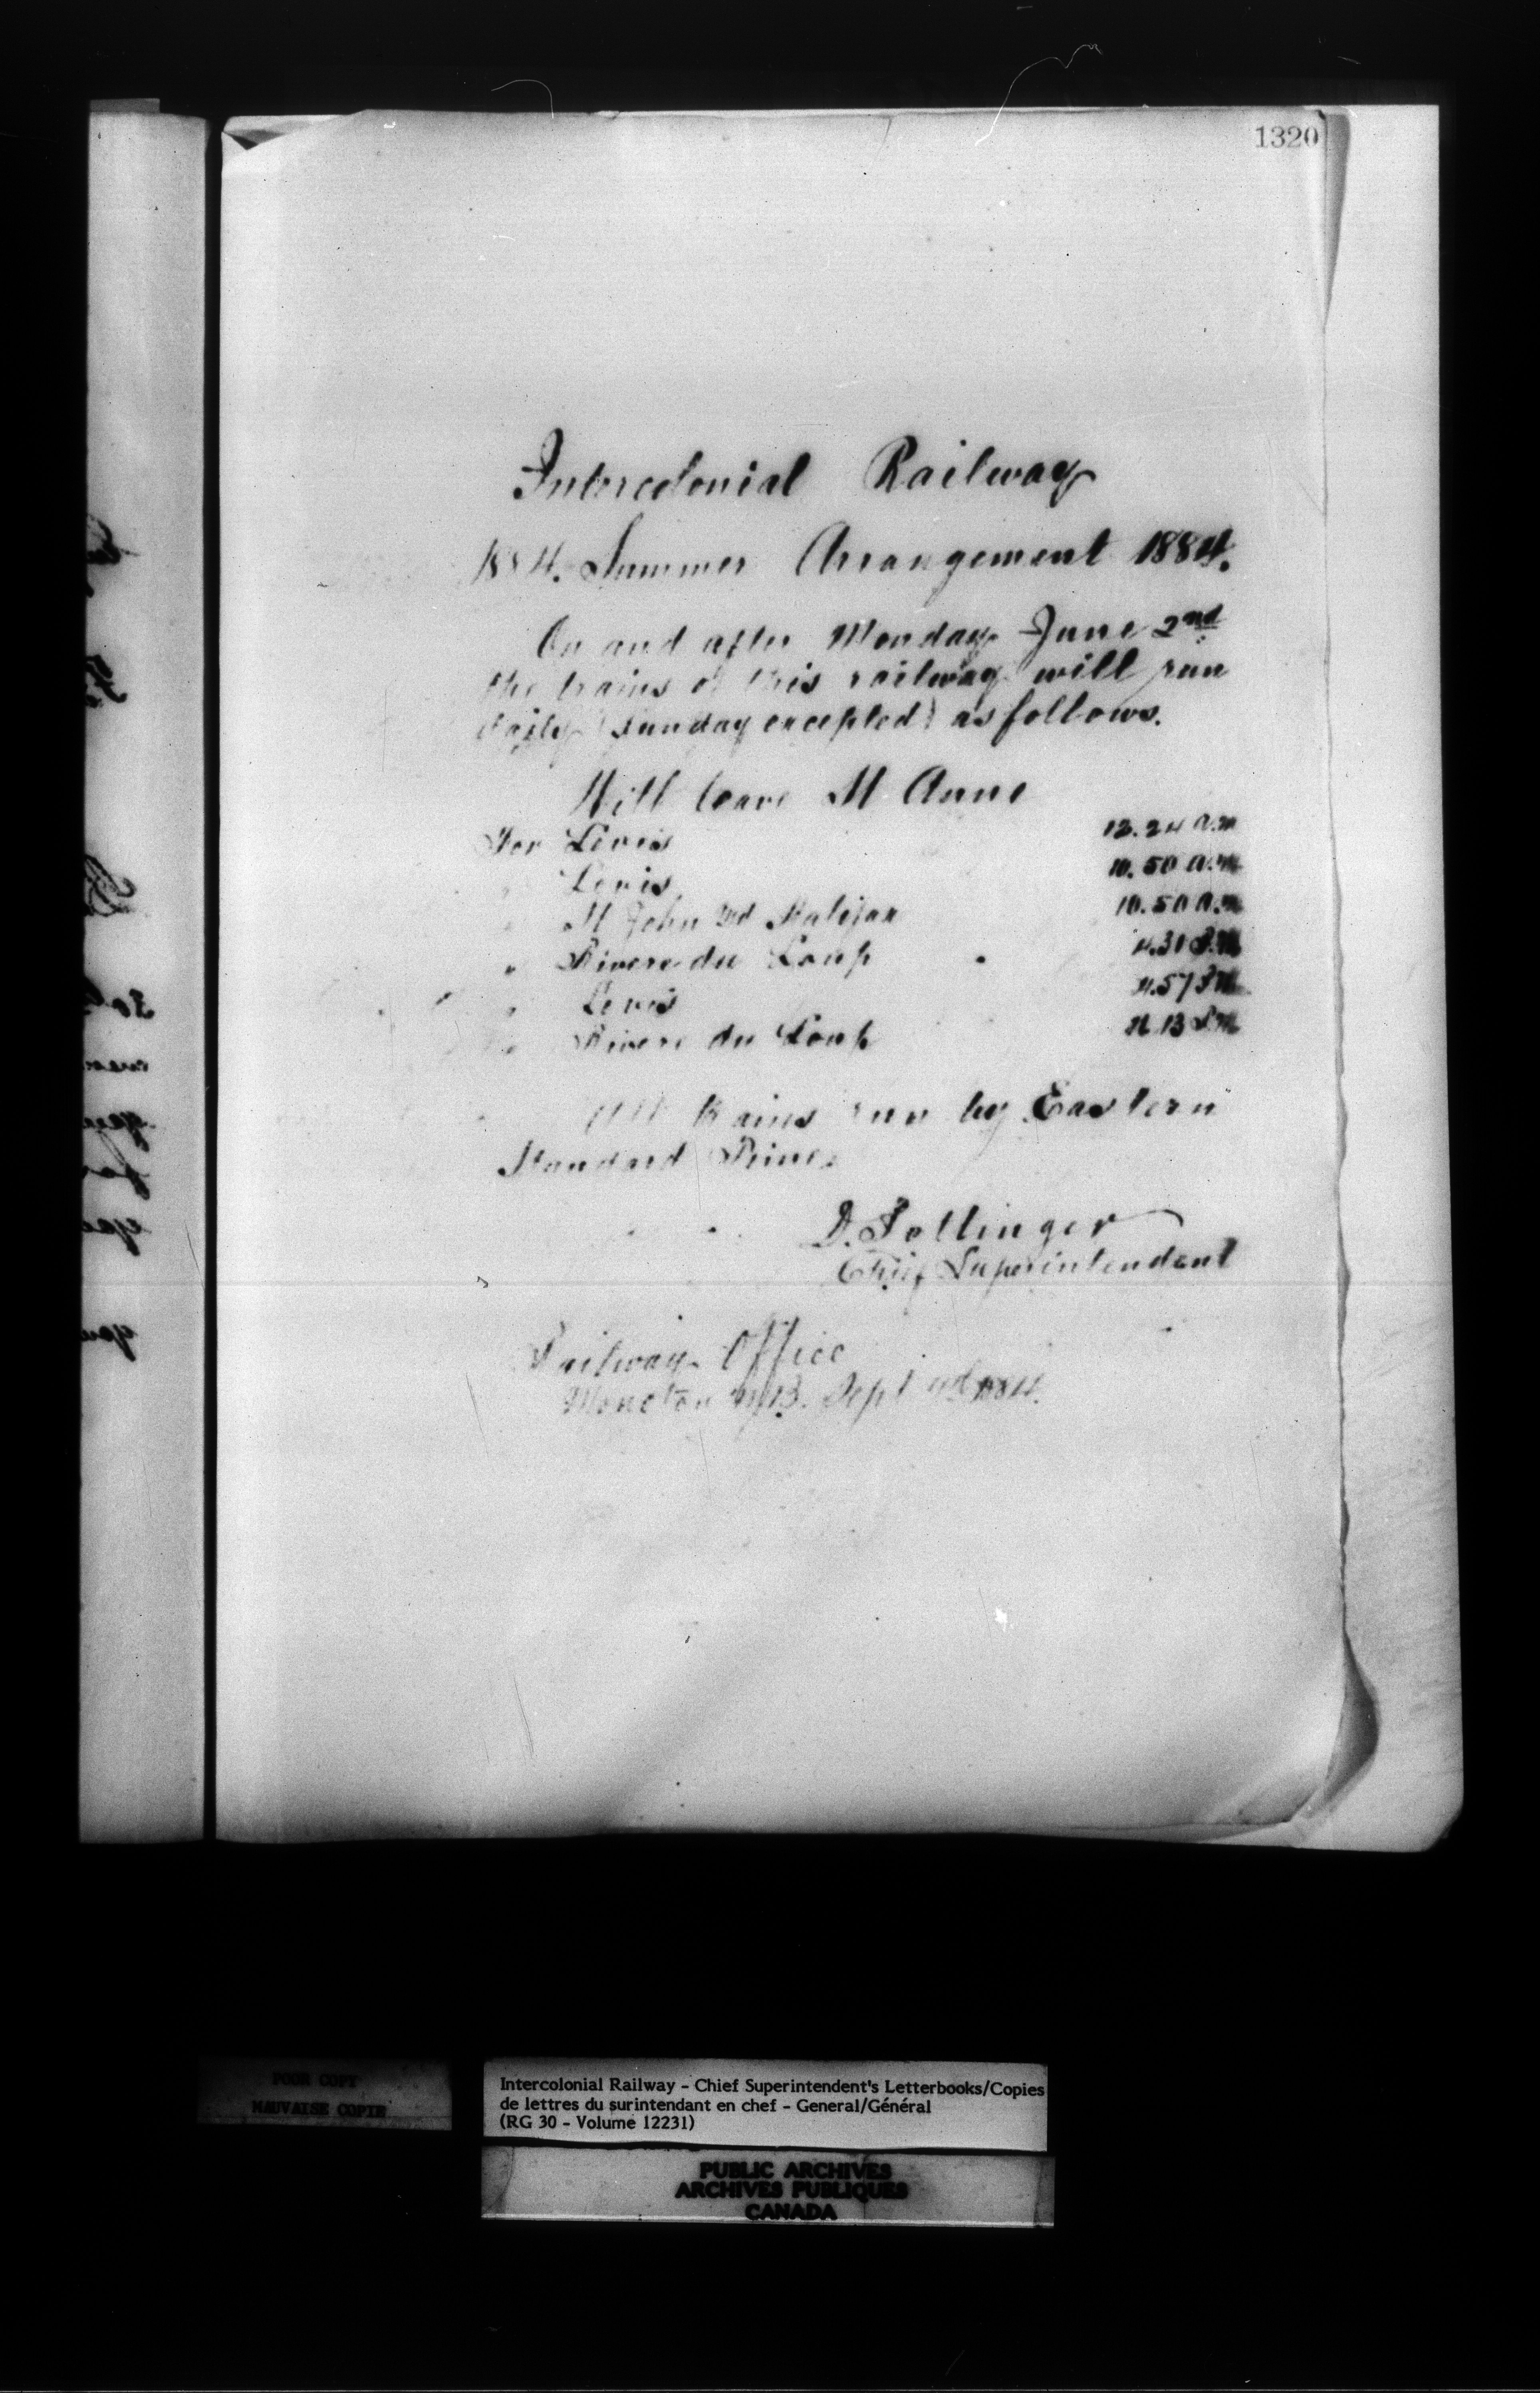 1320
Intercolonial Railway
1884. Summer Arrangement 1884.
On and after Monday June 2nd
the trains of this railway will run
daily (Sunday excepted) as follows.
Will leave St Anne
For Levis 12.24 a.m
" Levis 10.50 a.m
" St John and Halifax 10.50 a.m
" Rivere du Loup 4.31 P.M
" Levis 4.57 P.M
" Rivere du Loup P.M
All trains run by Eastern
Standard Time.
D. Pottinger
Chief Superintendent
Railway Office
Moncton N.B. Sept 1884.
POOR COPY
MAUVAISE COPIE
Intercolonial Railway - Chief Superintendent's Letterbooks/Copies
de lettres du surintendant en chef - General/Général
(RG 30 - Volume 12231)
PUBLIC ARCHIVES
ARCHIVES PUBLIQUES
CANADA